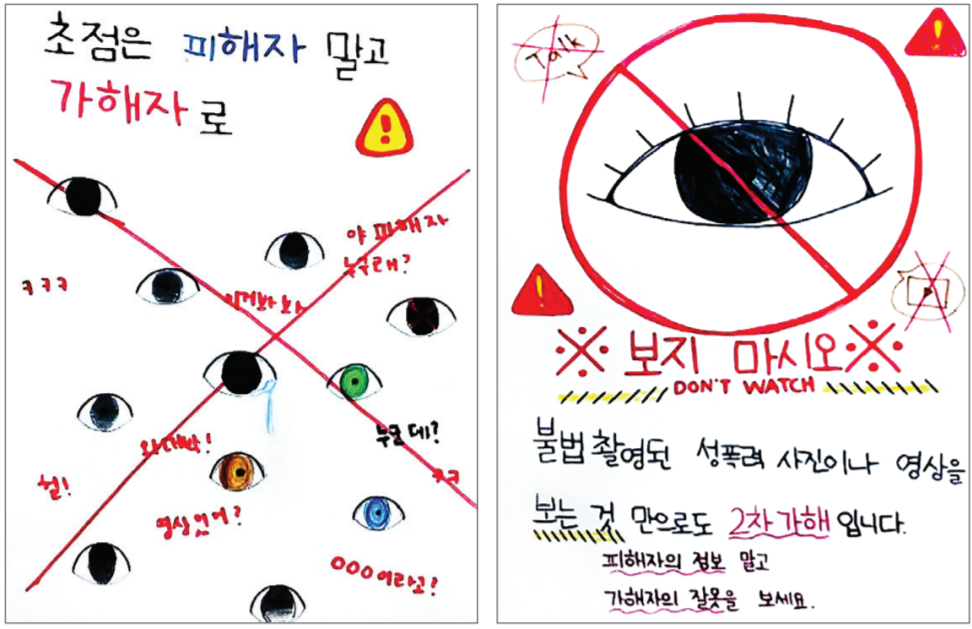 초점은 피해자 말고
가해자로
야 피해자
누구래?
ㅋㅋㅋ
이거봐봐
와대박!
누군데?
ㅋㅋ
헐!
영상있어?
OOO이라고?
Talk
※ 보지 마시오 ※
DON'T WATCH
불법촬영된 성폭력 사진이나 영상을
보는 것 만으로도 2차가해입니다.
피해자의 정보 말고
가해자의 잘못을 보세요.